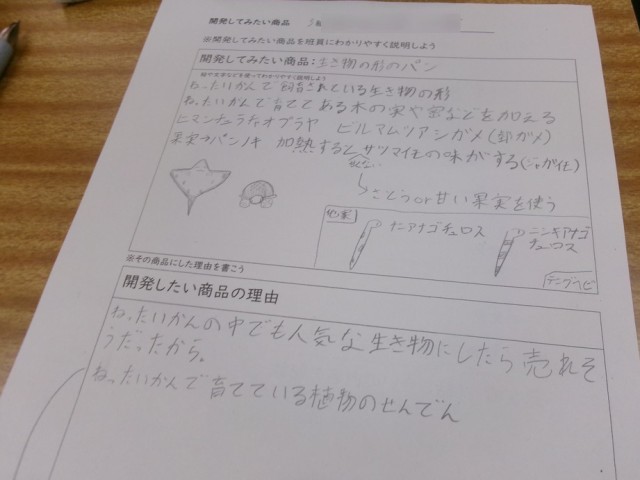 開発してみたい商品
※開発してみたい商品を班員にわかりやすく説明しよう
開発してみたい商品：生き物の形のパン
絵や文字などを使ってわかりやすく説明しよう
ねったいかんで飼育されている生き物の形
ねったいかんで育ててある木の実や金などを加える
ヒマンチュラチャオプラヤ ビルマムツアシガメ(卸ガメ)
果実→パンノキ 加熱するとサツマイモの味がする(ジャガイモ)
さとうor甘い果実を使う
チンアナゴチュロス
ニシキアナゴ
チュロス
テングヘビ
※その商品にした理由を書こう
開発したい商品の理由
ねったいかんの中でも人気な生き物にしたら売れそ
うだったから。
ねったいかんで育てている植物のせんでん